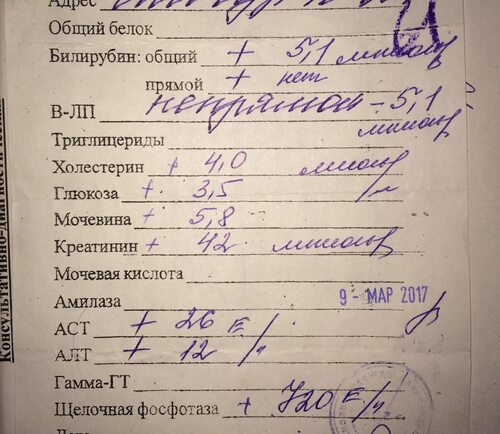 Адрес
Общий белок
Билирубин: общий + 5,1 мкмоль
прямой + нет
В-ЛП непрямой - 5,1
Триглицериды мкмоль
Холестерин + 4,0 ммоль
Глюкоза + 3,5 /л
Мочевина + 5,8
Креатинин + 42 мкмоль
Мочевая кислота
Амилаза 9 - МАР 2017
АСТ + 26 Е/л
АЛТ + 12 /л
Гамма-ГТ
Щелочная фосфотаза + 720 Е/л
Консультативно-диагностическ